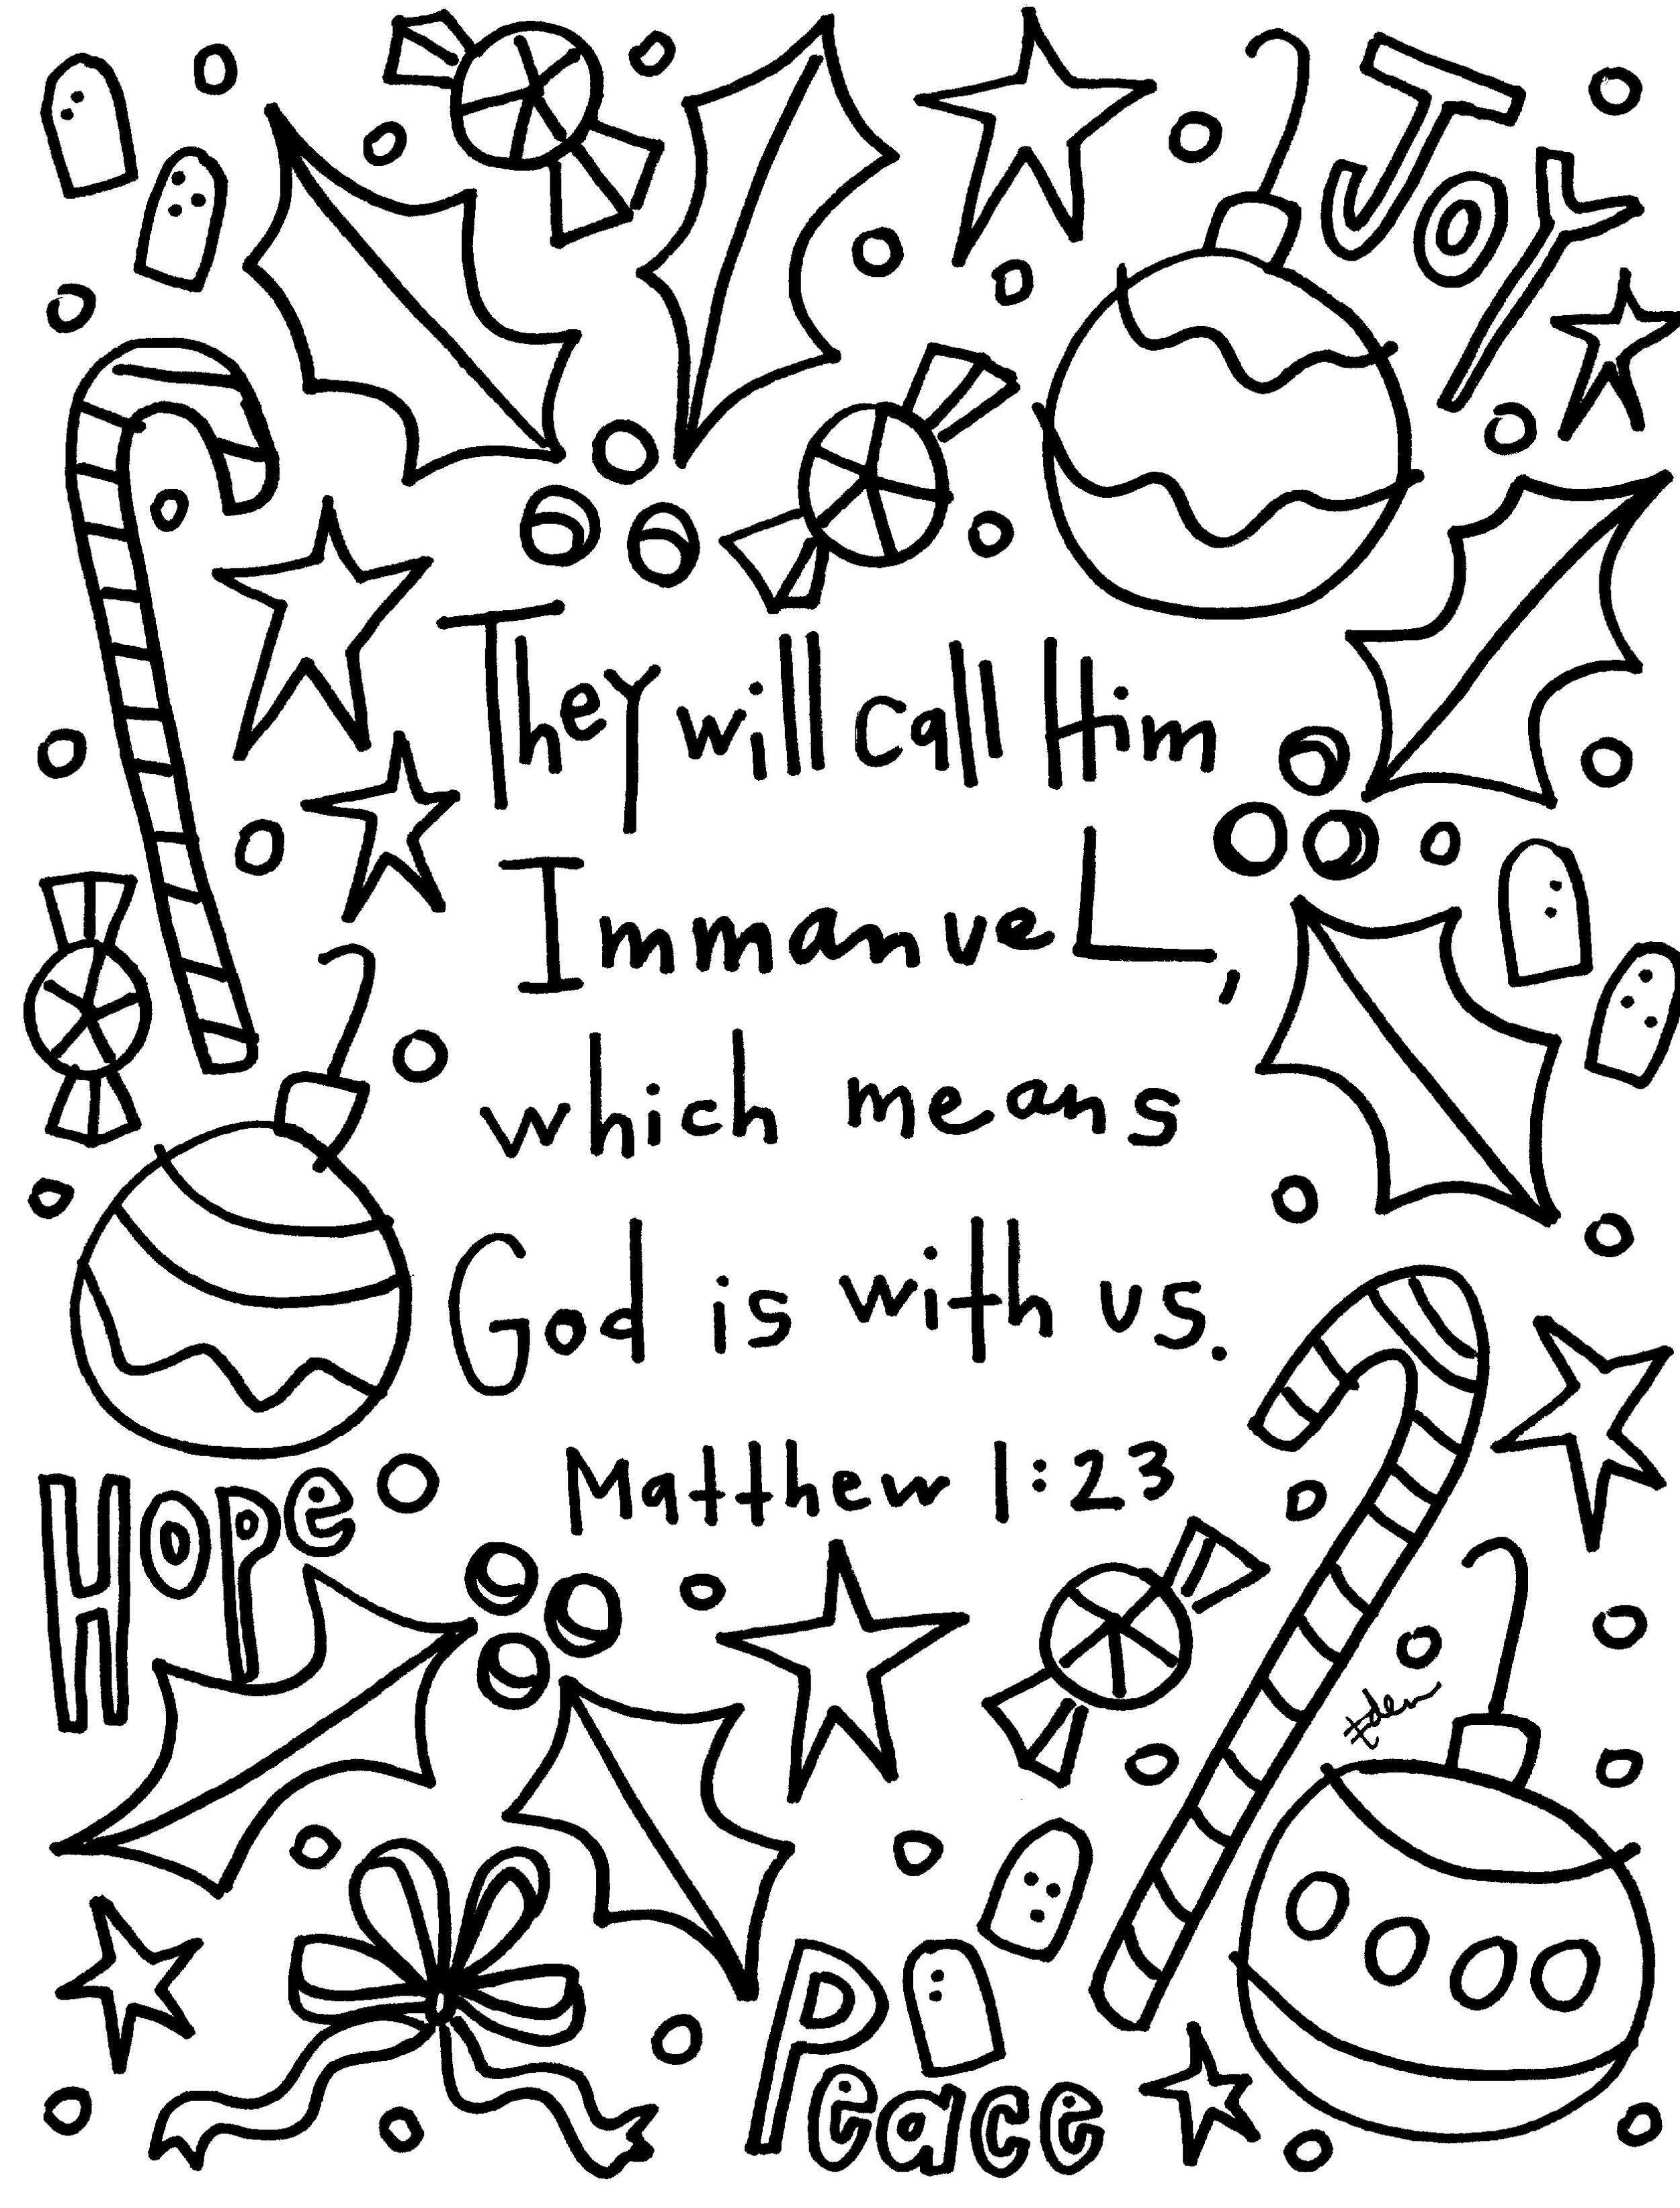 JOY
They will call Him
ImmanueL,
which means
God is with us.
Matthew 1:23
HOPe
Eden
Peace